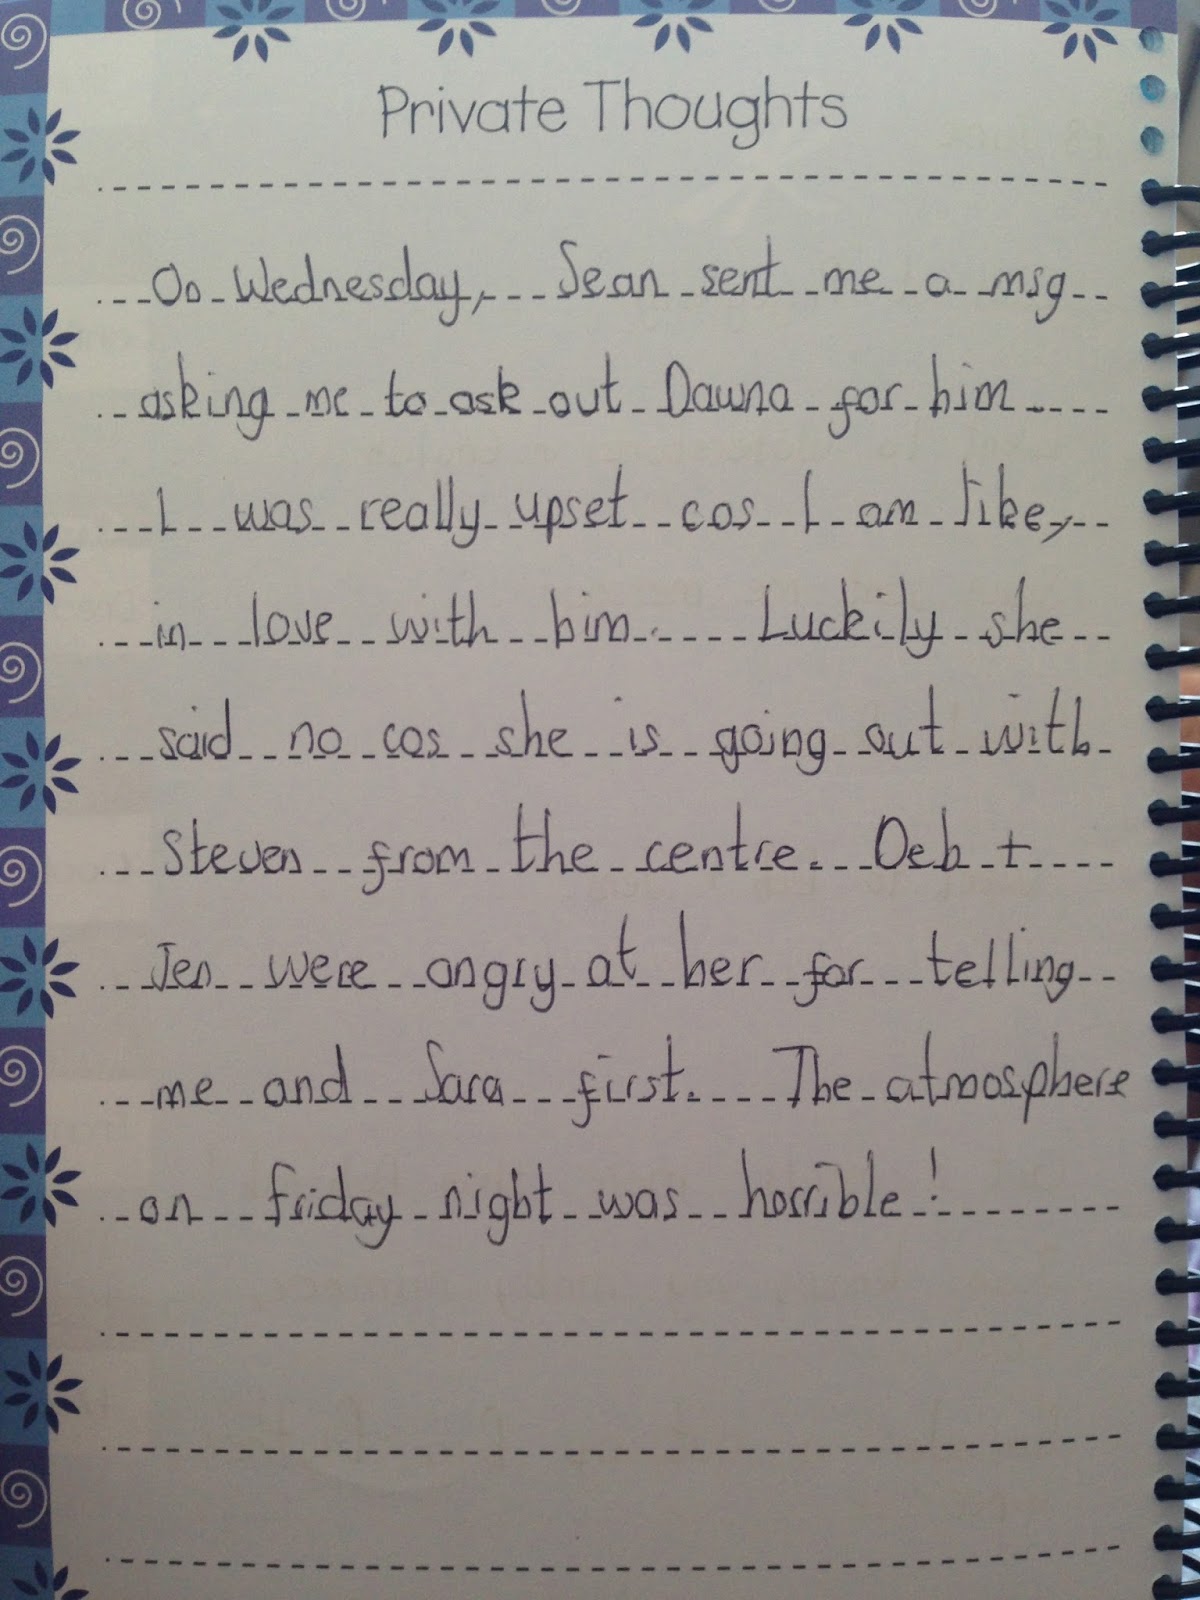 Private Thoughts
On Wednesday, Sean sent me a msg
asking me to ask out Dawna for him
I was really upset cos I am like,
in love with him. Luckily she
said no cos she is going out with
Steven from the centre. Deb +
Jen were angry at her for telling
me and Sara first. The atmosphere
on friday night was horrible!